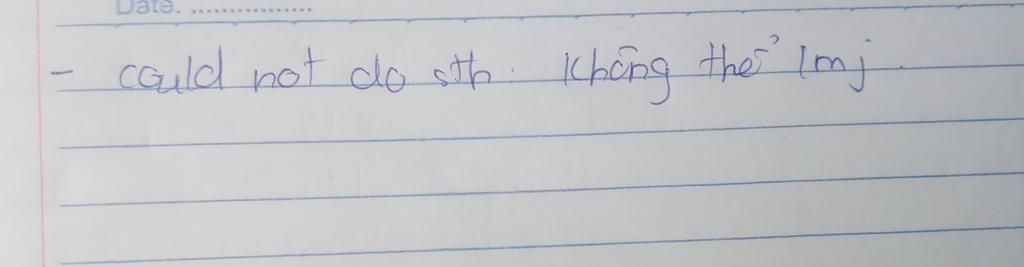 Date. ................
- could not do sth. Không thể lmj.